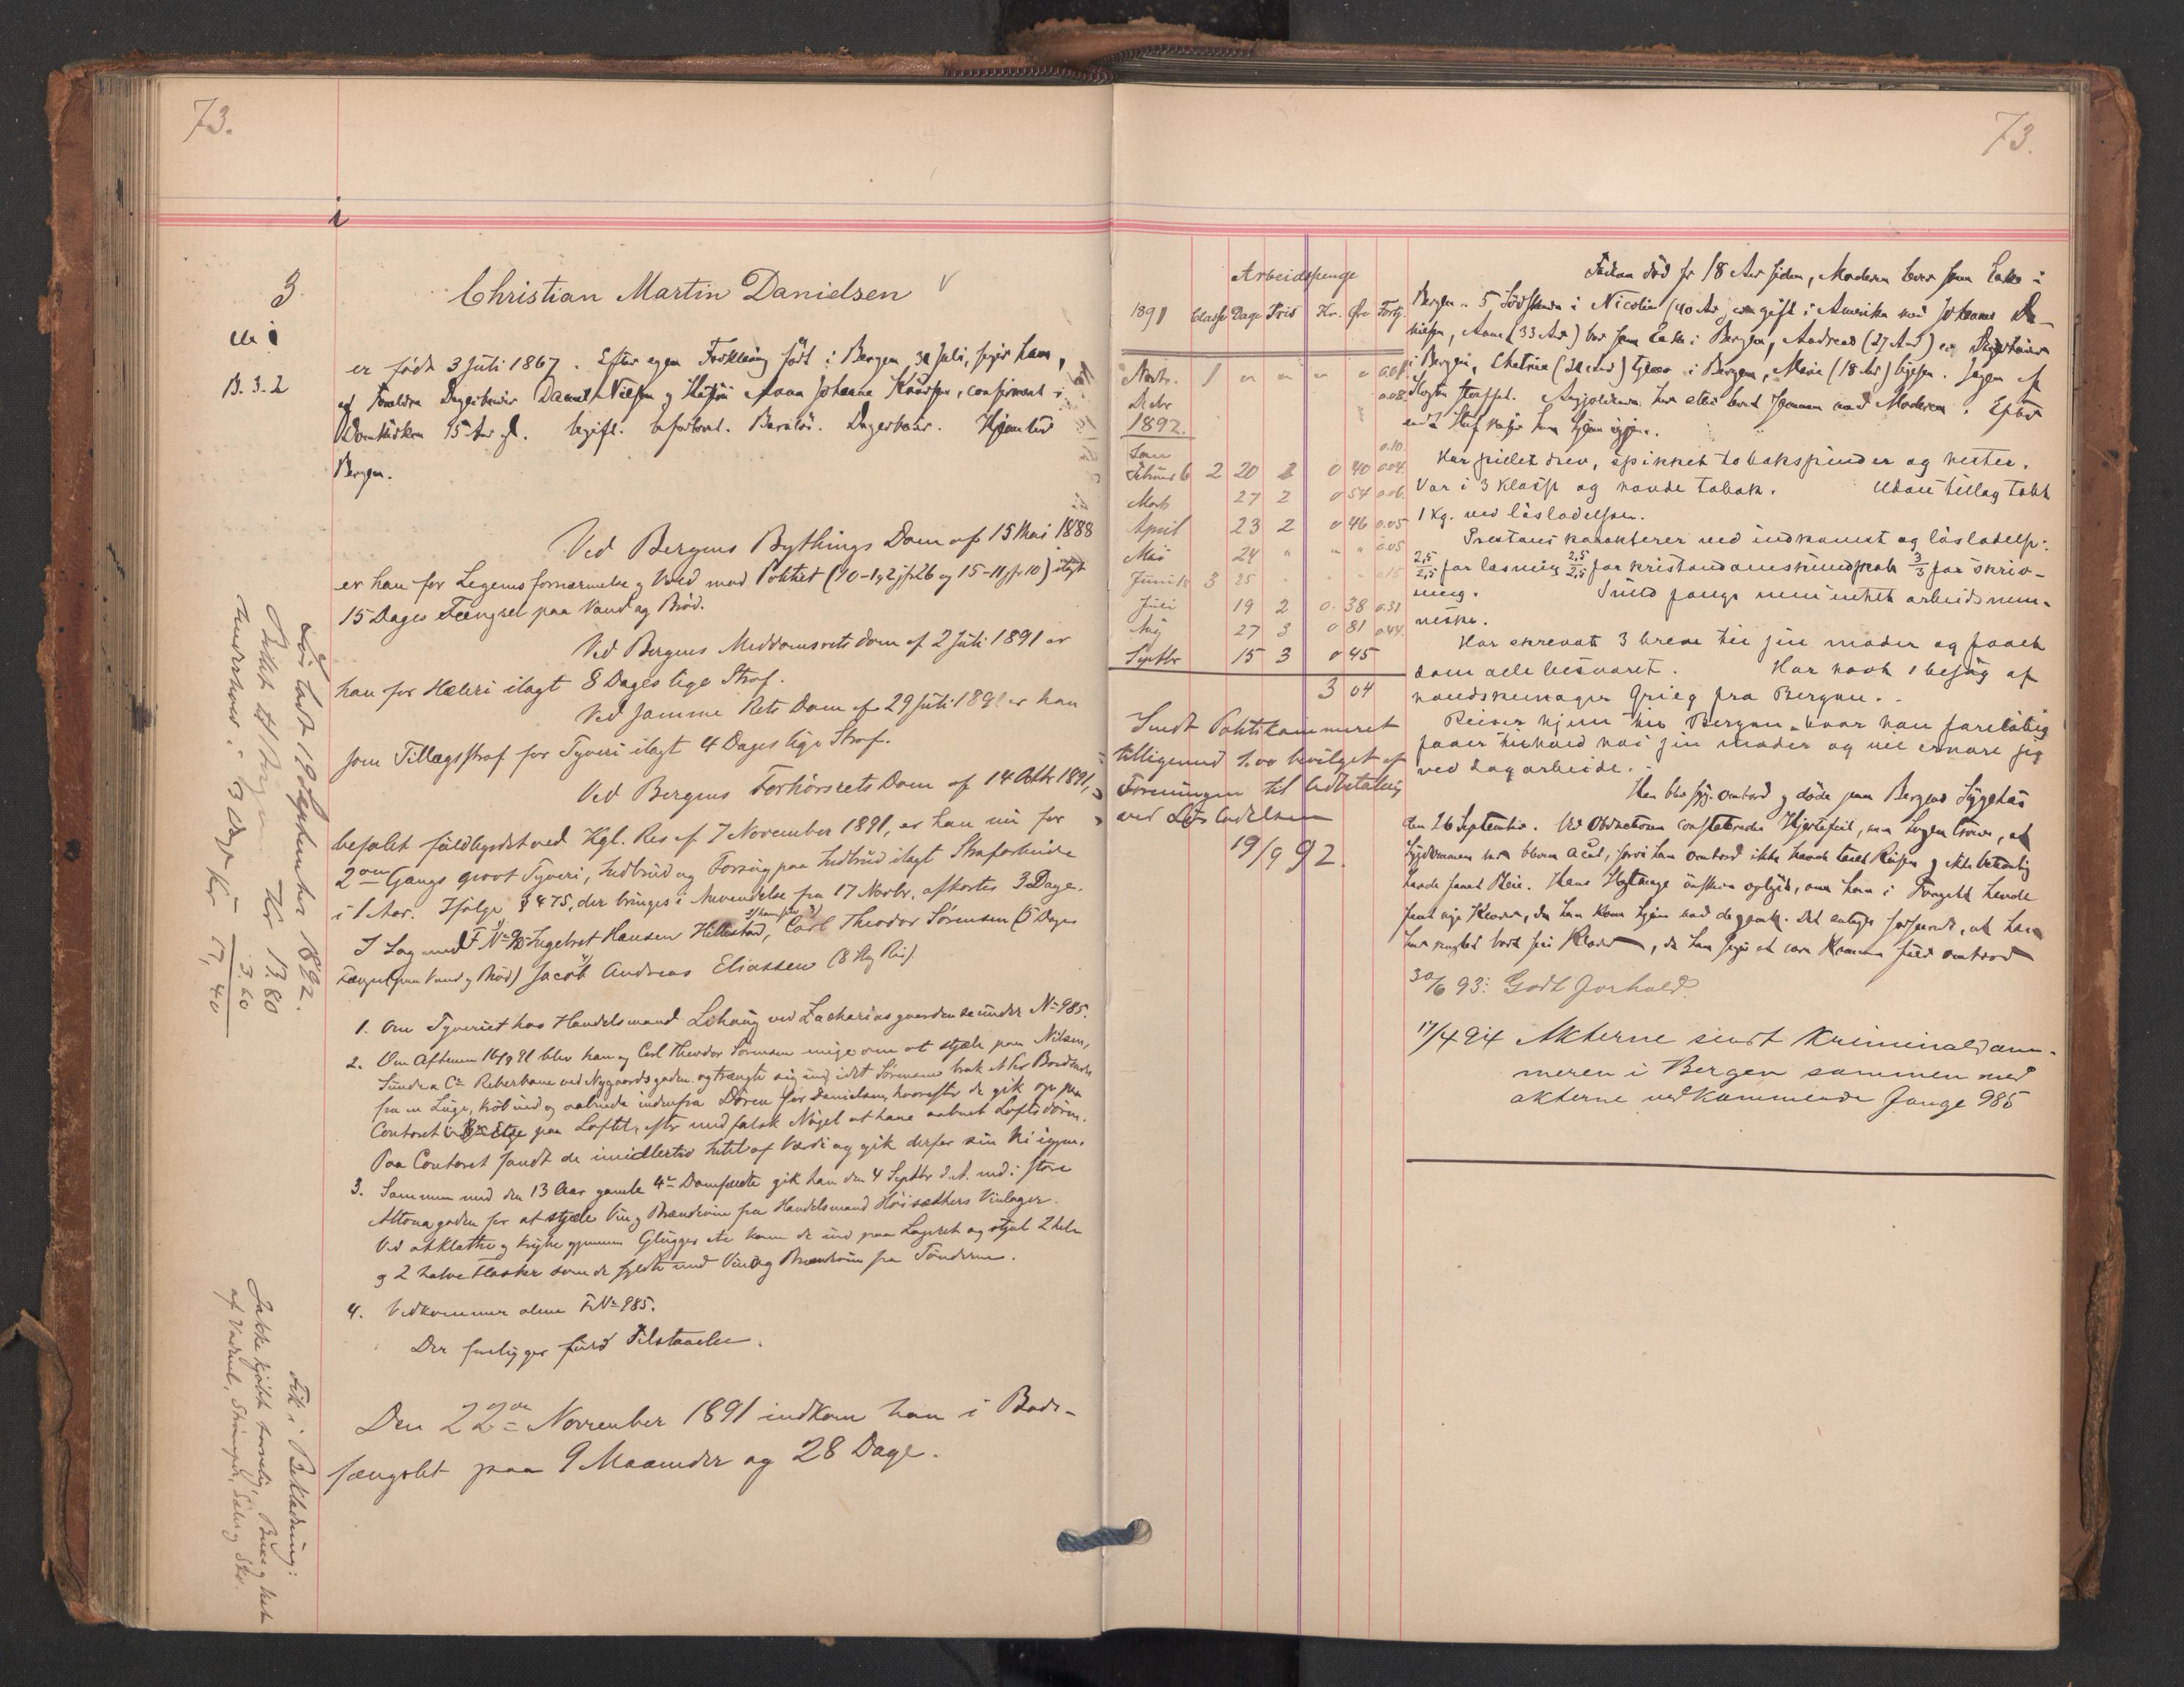 73.
i
3
B. 3. 2
Christian Martin Danielsen
er födt 3 Juli 1867. Efter egen Forklaring födt i Bergen, 30 Juli, siger han,
af Forældre Dagarbeider Daniel Nielsen og Hustru Anna Johanne Knudsen, confirmeret i
Domkirken 15 Aar gl. Ugift. Uforlovet. Barnlös. Dagarbeider. Hjemsted
Bergen.
Ved Bergens Bythings Dom af 15 Mai 1888
er han for Legemsfornærmelse og Vold mod Politiet (10-1, 2 jfr 26 og 15-11 jfr 10) ilagt
15 Dages Fængsel paa Vand og Bröd.
Ved Bergens Meddomsrets dom af 2 Juli 1891 er
han for Hæleri ilagt 8 Dages lige Straf.
Ved samme Rets Dom af 29 Juli 1891 er han
som Tillægsstraf for Tyveri ilagt 4 Dages lige Straf.
Ved Bergens Forhörsrets Dom af 14 Octbr 1891,
befalet fuldbyrdet ved Kgl. Res af 7 November 1891, er han nu for
2den Gangs grovt Tyveri, Indbrud og Forsög paa Indbrud ilagt Strafarbeide
i 1 Aar. Ifölge § 475, der bringes i Anvendelse fra 17 Novbr, afkortes 3 Dage.
I Lag med F No 985 Ingebret Hansen Hillestad, Carl Theodor Sörensen (5 Dages
Fængsel paa Vand og Bröd) Jacob Andreas Eliassen (8 Slg Ris).
1. Om Tyveriet hos Handelsmand Lehaug ved Zachariasgaarden se under No 985.
2. Om Aftenen 16/9 91 blev han og Carl Theodor Sörensen enige om at stjæle paa Nilsen,
Sunde & Co Reberbane ved Nygaardsgaden og trængte sig ind, idet Sörensen brak et Par Bordender
fra en Luge, kröb ind og aabnede indenfra Dören for Danielsen, hvorefter de gik op paa
Contoret paa Loftet, efter med falsk Nögel at have aabnet Loftsdören.
Paa Contoret fandt de imidlertid Intet af Værdi og gik derfor sin Vei igjen.
3. Sammen med den 13 Aar gamle 4de Domfældte gik han den 4 Septbr d. A. ned i store
Altonagaden for at stjæle Vin og Brændevin fra Handelsmand Höisæthers Vinlager.
Ved at klattre og krybe gjennem Glugger etc kom de ind paa Lageret og stjal 2 hele
og 2 halve Flasker som de fyldte med Vin og Brændevin fra Tönderne.
4. Vedkommer alene F No 985.
Der foreligger fuld Tilstaaelse.
Den 22de November 1891 indkom han i Bods-
fængslet paa 9 Maaneder og 28 Dage.
Löslat 19 September 1892.
Billet til Bergen Kr 13.80
Underhold i 3 Dage Kr 3.60
17,40
Fik i Beklædning:
Jakke kjöbt, Buxe og Vest
af Vadmel, Strömper, Seler og Sko.
73.
Arbeidspenge
1891 Classe Dage Pris Kr. Öre Fortj.
Novbr. 1 " " " " 0.01
Decbr 0.08
1892.
Jan 0.10
Februar 6 2 20 2 0 40 0.04
Marts 27 2 0 54 0.06
April 23 2 0 46 0.05
Mai 24 " " " 0.05
Juni 12 3 25 " " " 0.15
Juli 19 2 0. 38 0.31
Aug 27 3 0 81 0.44
Septbr 15 3 0 45
3 04
Sendt Politikammeret
tilligemed 5.00 bevilget af
Foreningen til Udbetaling
ved Lösladelsen
19/9 92.
Faderen död for 18 Aar siden, Moderen lever som Enke i
Bergen. 5 Södskende: Nicolai (40 Aar) er gift i Amerika med Johanne Da-
nielsen, Anne (33 Aar) bor som Enke i Bergen, Andreas (27 Aar) er Dagarbeider
i Bergen, Cathrine (22 Aar) tjener i Bergen, Marie (18 Aar) ligesaa. Ingen af
Slægten straffet. Angjældende har altid levet sammen med Moderen. Efter
endt Straf reiser han hjem igjen.
Har pillet drev, spikket tobakspinder og nester.
Var i 3 klasse og havde tobak. Uden tillæg tabt
1 kg. ved lösladelsen.
Præstens karakterer ved indkomst og lösladelse:
2,5/2,5 for læsning 2,5/2,5 for kristendomskundskab 3/3 for skriv-
ning. Snild fange men intet arbeidsmen-
neske.
Har skrevet 3 breve til sin moder og faaet
dem alle besvaret. Har havt 1 besög af
handskemager Grieg fra Bergen.
Reiser hjem til Bergen, hvor han forelöbig
faaer tilhold hos sin moder og vil ernære sig
ved dagarbeide.
Han blev syg ombord og döde paa Bergens Sygehus
den 26 September. Ved Obduktionen constateredes Hjertefeil, men Lægen troer, at
Sygdommen var bleven acut, fordi han ombord ikke havde taalt Reisen og ikke ordentlig
havde faaet Pleie. Hans Slægtninge önsker oplyst, om han i Fængslet havde
faaet nye Klæder, da han kom hjem med de gamle. Det antages sandsynligt, at han
har mistet bort sine Klæder, da han siges at være kommen fuld ombord
30/6 93: Godt Forhold.
17/4 94 Akterne sendt kriminaldom-
meren i Bergen sammen med
akterne vedkommende Fange 985